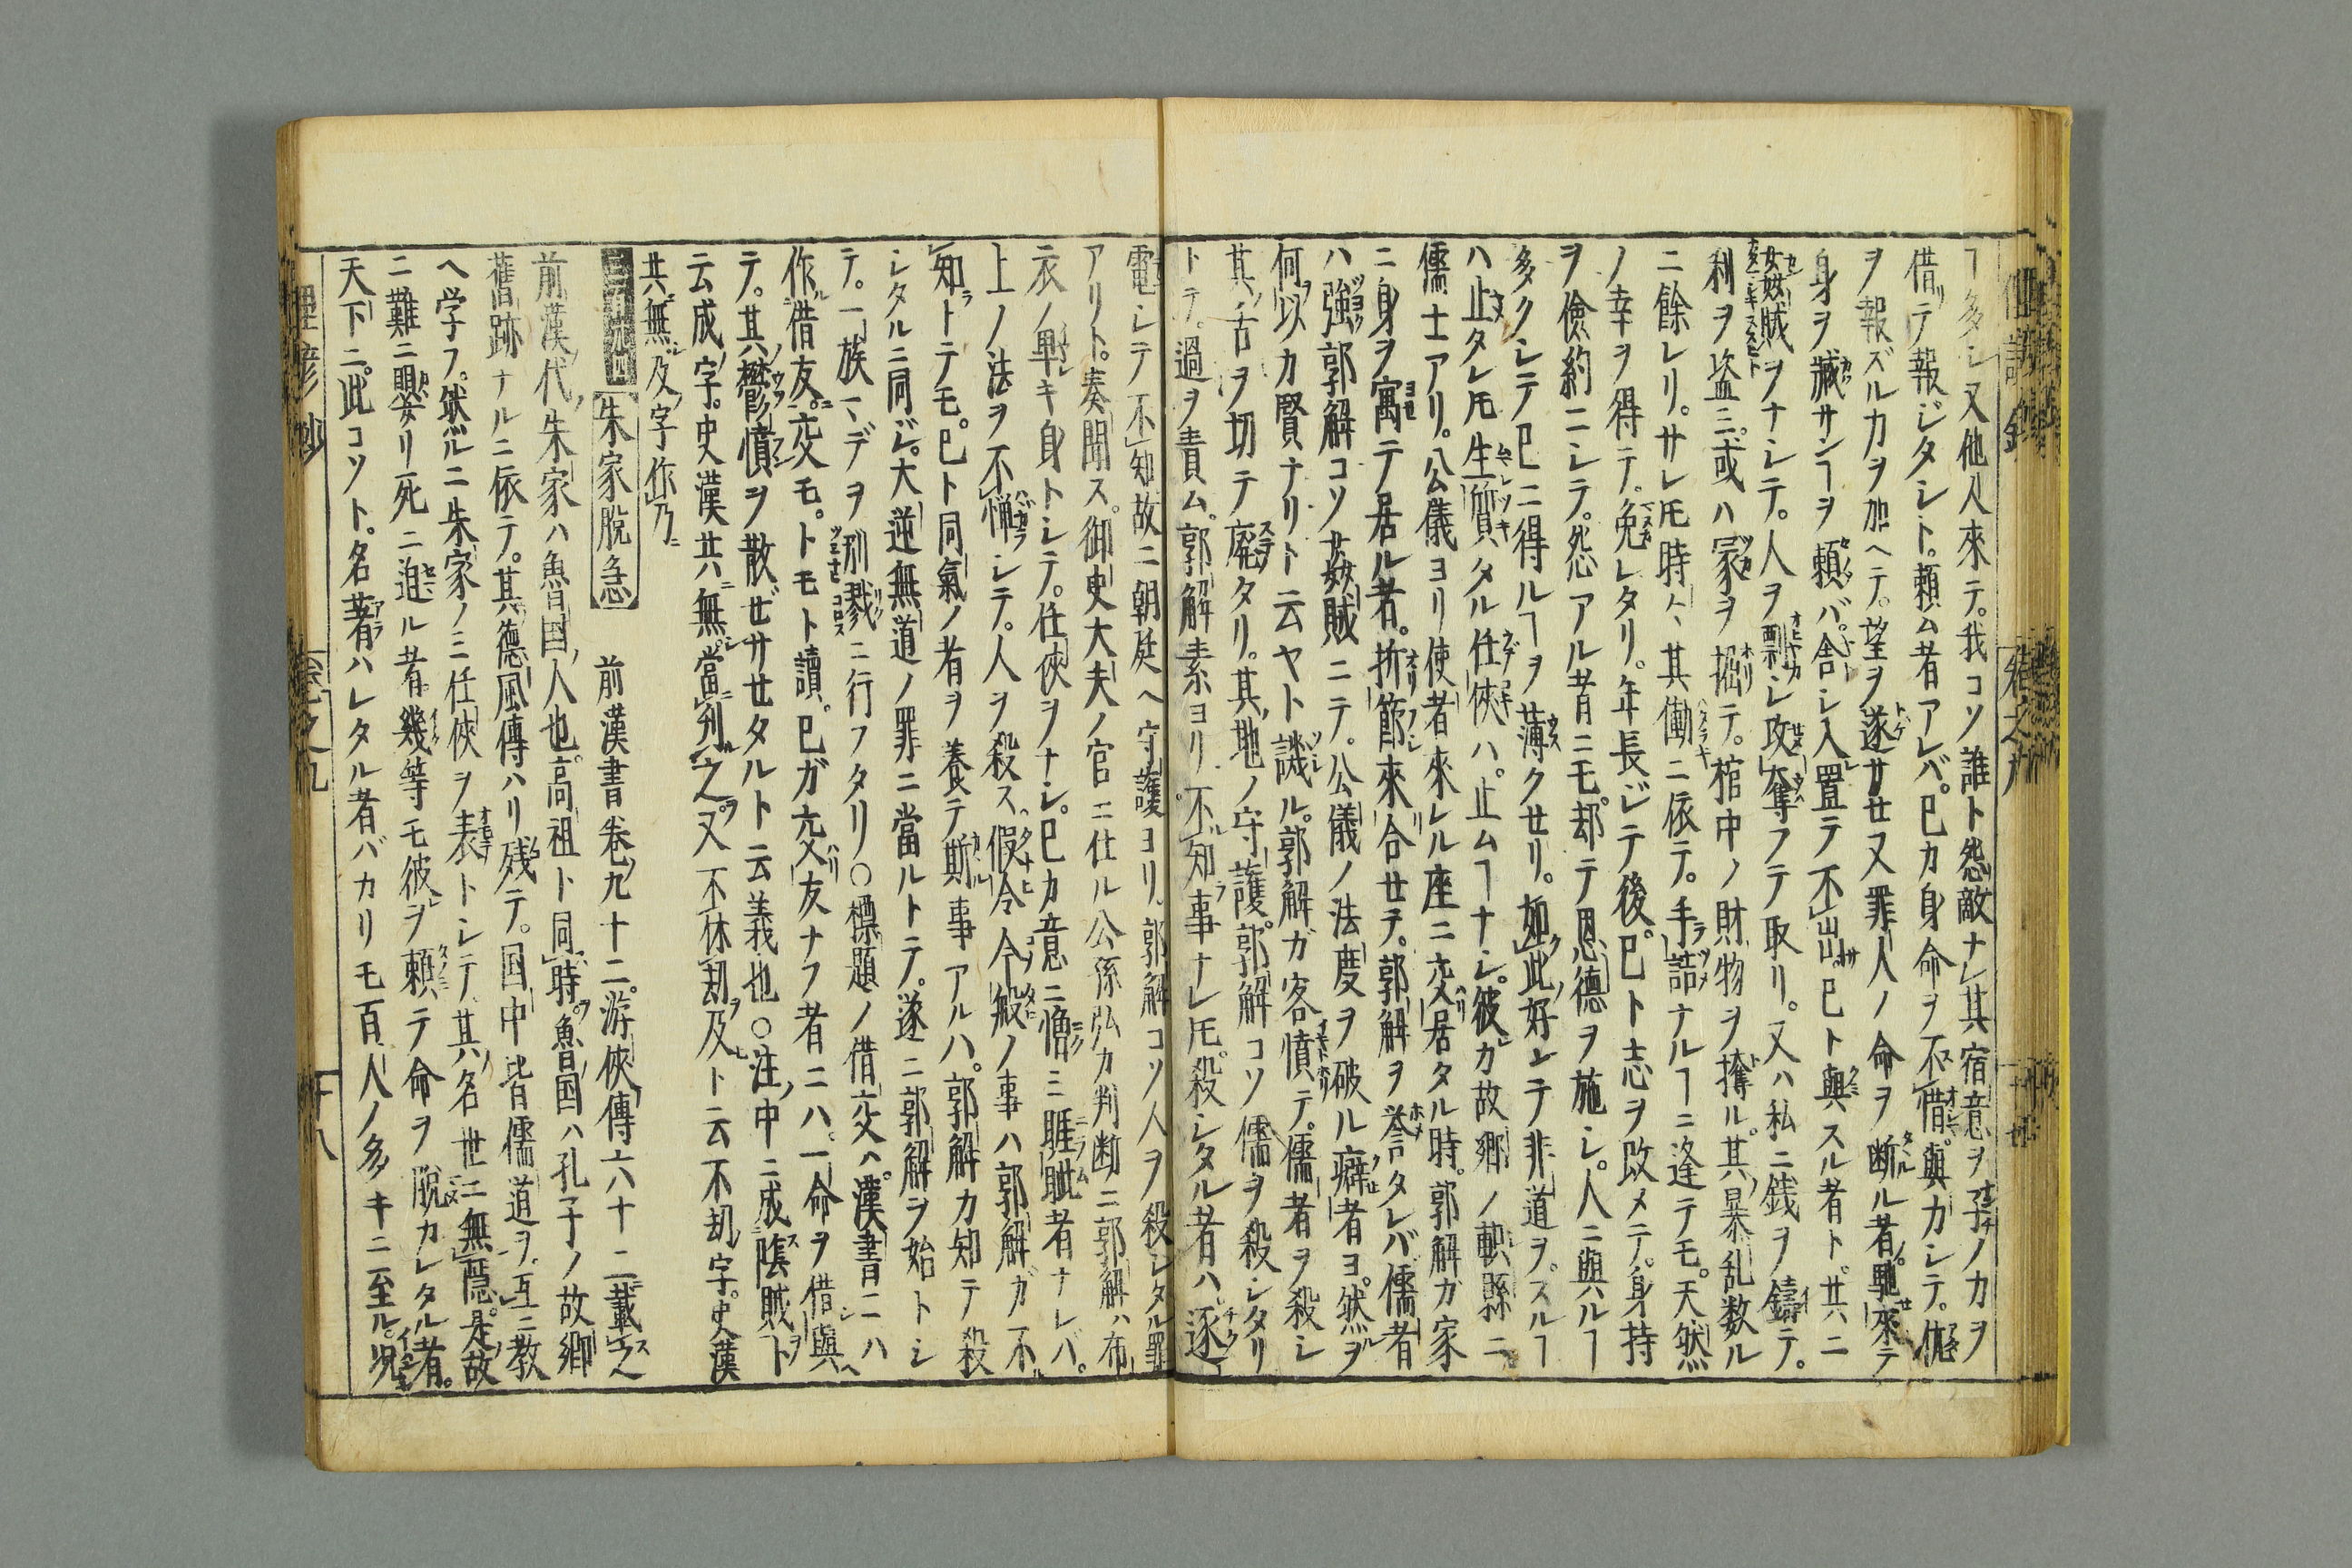 ヿ多シ又他人來テ。我コソ誰ト怨敵ナレ其宿意ヲ子ノカヲ
借テ報ジタシト。頼ム者アレバ。已カ身命ヲ不惜。與力シテ。
ヲ報ズルカヲ加ヘテ。望ヲ遂サセ又罪人ノ命ヲ断ル者馳來テ
身ヲ藏サンヿヲ頼バ。舎シ入置テ不出。已ト與スル者ト。共ニ
姦賊ヲナシテ。人ヲ剽シ攻奪フテ取リ。又ハ私ニ銭ヲ鑄テ。
利ヲ盗ミ。或ハ冢ヲ掘テ。棺中ノ財物ヲ奪ル。其暴乱数ル
ニ餘レリ。サレ𪜈時〻其働ニ依テ。手詰ナルヿニ逢テモ。天然
ノ幸ヲ得テ。免レタリ。年長ジテ後。已ト志ヲ改メテ。身持
ヲ儉約ニシテ。怨アル者ニモ。却テ恩德ヲ施シ。人ニ與ルヿ
多クシテ已ニ得ルヿヲ薄クセリ。如此好ンテ非道ヲ。スルヿ
ハ止タレ𪜈生質タル任俠ハ。止ムヿナシ。彼カ故郷ノ軹縣ニ
儒士アリ。公儀ヨリ使者來レル座ニ交居タル時。郭解ガ家
ニ身ヲ寓テ居ル者。折節來合セテ。郭解ヲ誉タレバ儒者
ハ強郭解コソ姦賊ニテ。公儀ノ法度ヲ破ル癖者ヨ。然ヲ
何以カ賢ナリト云ヤト譏ル。郭解ガ客憤テ。儒者ヲ殺シ
其舌ヲ切テ廢タリ。其地ノ守護。郭解コソ儒ヲ殺シタリ
トテ。過ヲ責ム。郭解素ヨリ不知事ナレ𪜈。殺シタル者ハ。逐
電シテ不知故ニ朝廷ヘ守護ヨリ。郭解コソ人ヲ殺シタル罪
アリト。奏聞ス。御史大夫ノ官ニ仕ル公孫弘カ判断ニ郭解ハ布
衣ノ卑キ身トシテ。任俠ヲナシ。已カ意ニ憎ミ睚眦者ナレバ。
上ノ法ヲ不憚シテ。人ヲ殺ス。假令今般ノ事ハ郭解ガ不
知トテモ。已ト同氣ノ者ヲ養テ斯事アルハ。郭解カ知テ殺
シタルニ同ジ。大逆無道ノ罪ニ當ルトテ。遂ニ郭解ヲ始トシ
テ。一族マデヲ別戮ニ行フタリ〇標題ノ借交ハ。漢書ニハ
作借友。交モ。トモト讀。已ガ交友ナフ者ニハ。一命ヲ借與
テ。其鬱憤ヲ散ゼサセタルト云義也〇注中ニ成隂賊ト
云成字。史漢共無。當刋之。又不休刼及ト云不刼字。史漢
共無及字作乃
朱家脱急 前漢書卷九十二。游俠傳六十二載之
前漢代朱家ハ魯国人也。高祖ト同時。魯国ハ孔子ノ故郷
舊跡ナルニ依テ。其德風傳ハリ残テ。国中皆儒道ヲ互ニ教
ヘ学フ。然ルニ朱家ノミ任俠ヲ表トシテ其名世ニ無隠。是故
ニ難ニ罹リ死ニ迫ル者。幾等モ彼ヲ頼テ命ヲ脱カレタル者。
天下ニ。此コソト。名著ハレタル者バカリモ百人ノ多キニ至ル。况
卷之九
十八